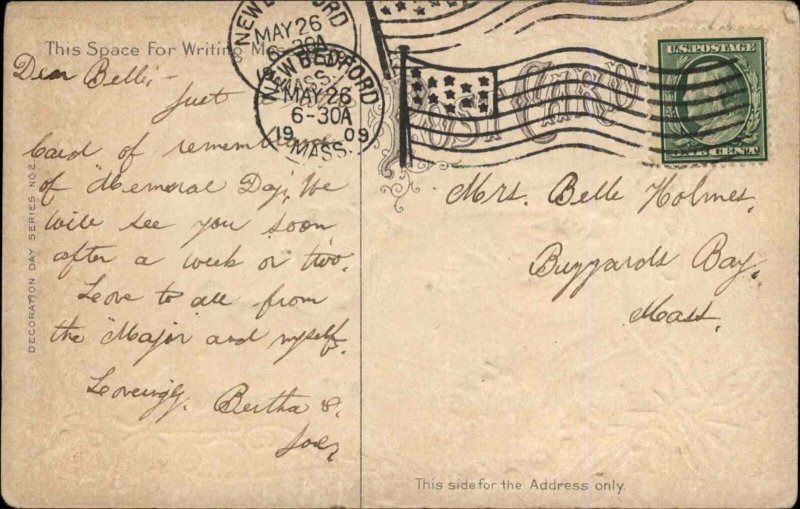 This Space For Writing
Dear Belle,-
Just
Card of remembrance
of "Memoral Day", We
will see you soon
after a week or two.
Love to all from
the "Major" and myself.
Lovingly,
Bertha &
NEW BEDFORD
MAY 26
6-30A
MASS.
NEW BEDFORD
MAY 26
6-30A
19 09
MASS.
POST CARD
U.S. POSTAGE
CENT
Mrs. Belle Holmes,
Buzzards Bay,
Mass.
DECORATION DAY SERIES NO 2
This side for the Address only.